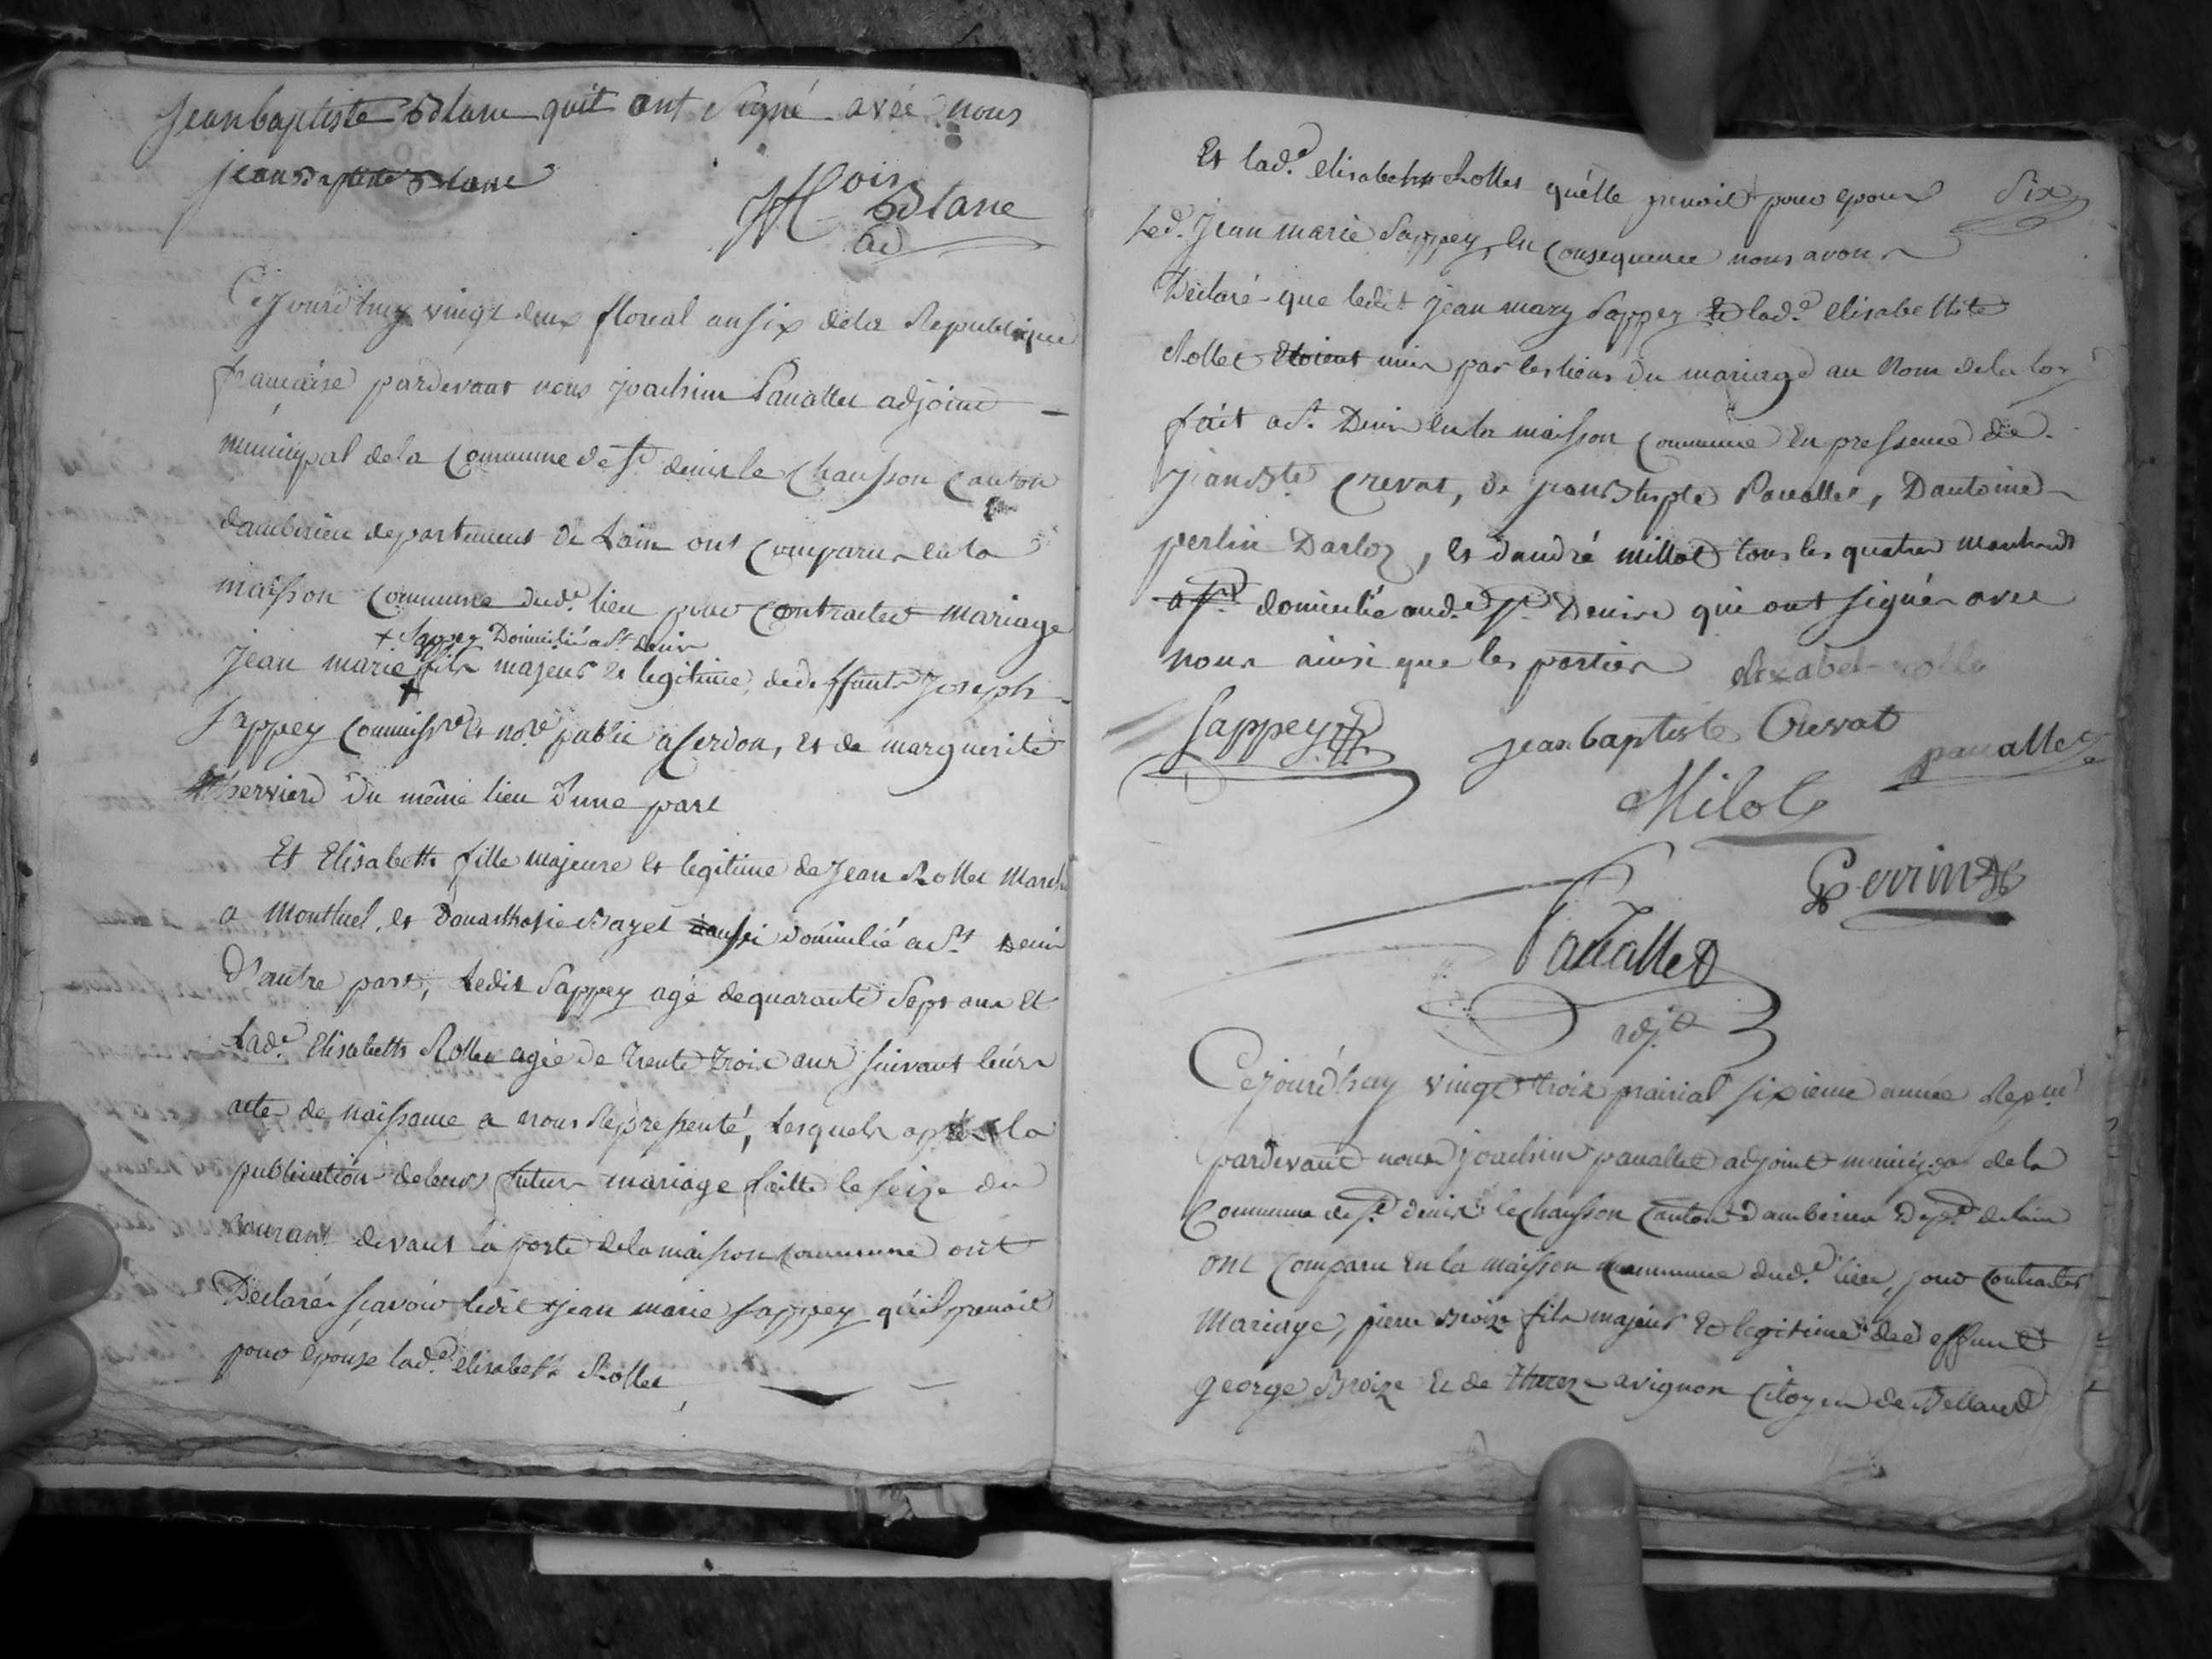 Jeanbaptiste Blanc quit ont signé avec nous
jean Baptiste Blanc
Blanc
ad
Cejourdhuy vingt deux floreal an six dela Republique
française pardevant nous joachim Panallet adjoint
municipal dela Commune de St denis le Chausson Canton
damberieu departement de Lain ont comparu en la
maison commune dud.e lieu pour contracter mariage
+ Sappey Domicilié a St denis
jean marie + fils majeur et legitime de deffunts Joseph
Sappey Commiss.re et no.re public a Cerdon, et de marguerite
du même lieu d'une part
Et Elisabeth fille majeure et legitime de Jean Rollet March
a Montluel, et danasthasie Bazet aussi domicilié a St Denis
D'autre part, Ledit Sappey agé de quarante Sept ans Et
Lad.e Elisabeth Rollet agée De trente trois ans suivant leurs
actes de naissance a nous Representé, Lesquels après la
publication de leurs futur mariage faitte le seize du
courant devant la porte dela maison commune ont
Déclarés sçavoir ledit Jean marie Sappey qu'il prenoit
pour épouse lad.e elisabeth Rollet,
Et lad.e elisabeth Rollet qu'elle prenoit pour epoux
Six
led. Jean marie Sappey, En Consequence nous avons
Déclaré que ledit jean mary Sappey Et lad.e elisabethte
Rollet Etoient unis par les liens du mariage au Nom de la loy
fait a St Denis en la maison Commune En pressence de
jean Bte Crevat, de jean Panallet, Dantoine
perrin Darloz, et dandré millot tous les quatres marchands
domicilié aud.e St Denis qui ont signés avec
nous ainsi que les parties elizabet rolle
Sappey
jean baptiste Crevat
panallet
Milot
Perrin
Panallet
adj.t
Cejourd'huy vingt trois prairial sixieme annee Rep.ne
pardevant nous joachim panallet adjoint municipal de la
Commune de St denis le chausson Canton d'amberieu Dep.t de lain
ont comparu En la maison commune dud.e lieu, pour contracter
Mariage, pierre Broize fils majeur Et legitime de deffunt
george Broize Et de avignon Citoyen de